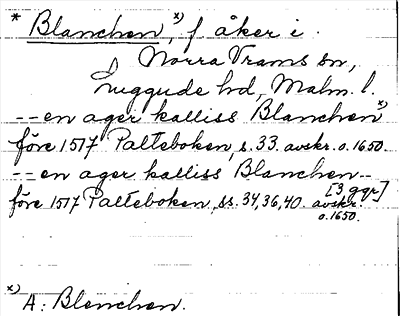 * Blanchen, x) f åker i
Norra Vrams sn,
Luggude hd, Malm. l.
-- en ager kalliss Blanchen x)
före 1517 Palteboken, s. 33. avskr. o. 1650.
-- en ager kalliss Blanchen --
[3 ggr]
före 1517 Palteboken, ss. 34, 36, 40. avskr.
o. 1650.
x) A: Blenchen.